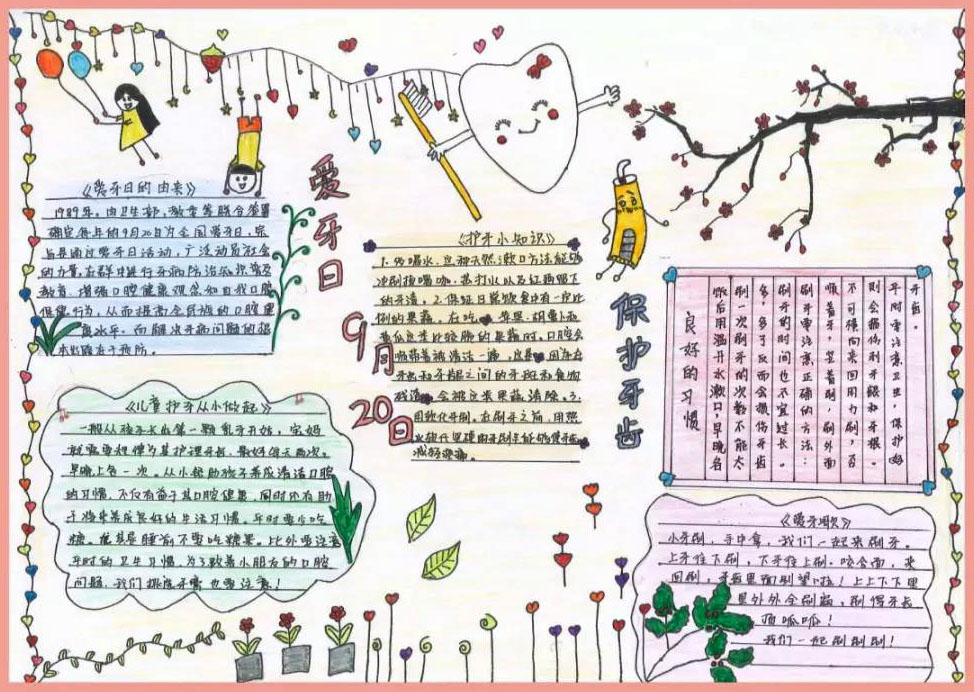 《爱牙日的由来》
1989年，由卫生部、教委等联合签署
确定每年的9月20日为全国爱牙日，宗
旨是通过爱牙日活动，广泛动员社会
的力量，在群众中进行牙病防治知识普及
教育，增强口腔健康观念和自我口腔
保健行为，从而提高全民族的口腔
健康水平。而解决牙病问题的
本出路在于预防。
爱牙日
9月
20日
《护牙小知识》
冲刷掉咖啡、苏打水以及红酒留下
的牙渍。2.保证日常饮食有一定比
例的果蔬。在吃 苹果、胡萝卜
些比较脆的果蔬时，口腔会
牙齿和牙龈之间的牙斑和食物
残渣 会被这类果蔬清除。3.
用软化牙刷，在刷牙之前，用热
减轻
保护牙齿
良好的习惯
饭后用温开水漱口，早晚各
刷一次，刷牙的次数不能太
多，多了反而会损伤牙齿
刷牙的时间也不宜过长。
刷牙要注意正确的方法：
顺着牙，竖着刷，刷外面
不可横向来回用力刷，否
则会损伤到牙龈和牙根。
平时要注意卫生，保护好
牙齿。
《儿童护牙从小做起》
一般从孩子长出第一颗乳牙开始，家长
就需要想牌为其护理牙齿，最好每天两次，
早晚上各一次。从小帮助孩子养成清洁口腔
的习惯，不仅有益于其口腔健康，同时还有助
于将来养成良好的生活习惯。平时要少吃
糖，尤其是睡前不要吃糖果。此外要注意
平时的卫生习惯，为了教着小朋友的口腔
问题，我们 也要注意！
《爱牙歌》
小牙刷，手中拿，我们一起来刷牙。
上牙往下刷，下牙往上刷，咬合面，来
回刷，牙齿里面刷 啦！上上下下里
里外外全刷遍，刷得牙齿
顶呱呱！
我们一起刷刷刷！